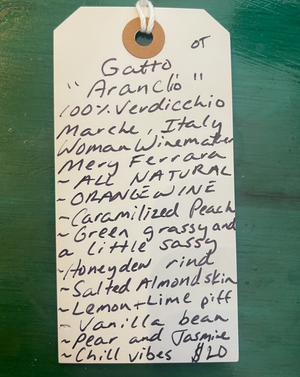 OT
Gatto
"Aranclo"
100% Verdicchio
Marche, Italy
Woman Winemaker
Mery Ferrara
~ ALL NATURAL
~ ORANGE WINE
~ Caramilized Peach
~ Green grassy and
a little sassy
~ Honeydew rind
~ Salted Almond skin
~ Lemon + Lime piff
~ Vanilla bean
~ Pear and Jasmine
~ Chill vibes $20